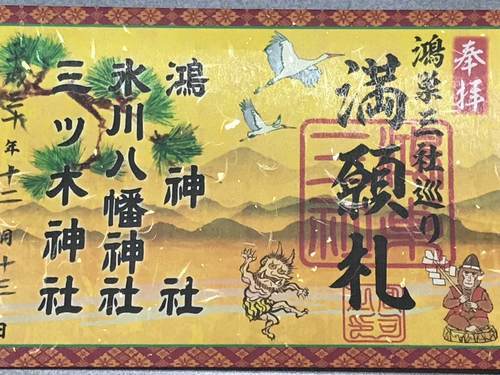 奉拝
鴻巣三社巡り
満願札
鴻神社
氷川八幡神社
三ツ木神社
年十二月十三日